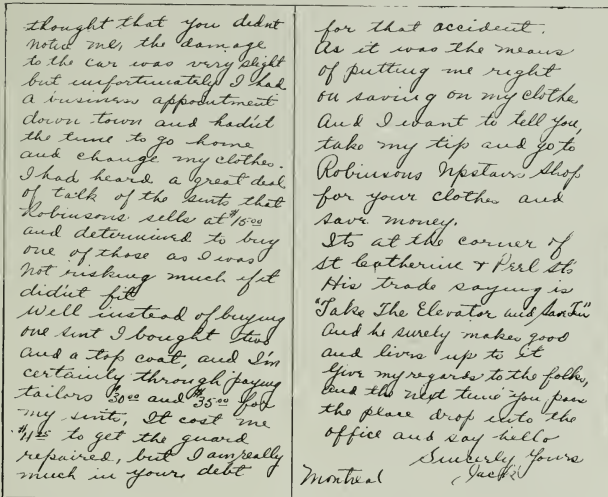 thought that you didn't
notice me, the damage
to the car was very slight
but unfortunately I had
a business appointment
down town and hadn't
the time to go home
and change my clothes.
I had heard a great deal
of talk of the suits that
Robinsons sells at $15.00
and determined to buy
one of those as I was
not risking much if it
didn't fit
Well instead of buying
one suit I bought two
and a top coat, and I'm
certainly through paying
tailors $30.00 and $35.00 for
my suits, It cost me
to get the guard
repaired, but I am really
much in your debt
for that accident.
As it was the means
of putting me right
on saving on my clothes
And I want to tell you,
take my tip and go to
Robinsons Upstairs Shop
for your clothes and
save money.
Its at the corner of
St Catherine & Peel Sts
His trade saying is
"Take The Elevator and Save Ten"
And he surely makes good
and lives up to it
Give my regards to the folks,
and the next time you pass
the place drop into the
office and say hello
Sincerely Yours
Montreal Jack